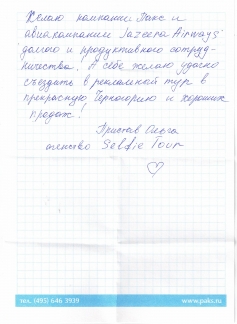 Желаю компании Пакс и
авиакомпании Jazeera Airways
долгого и продуктивного сотруд-
ничества. А себе желаю удачно
съездить в рекламный тур в
прекрасную Черногорию и хороших
продаж!
Ольга
агенство Selfie Tour
тел. (495) 646 3939
www.paks.ru